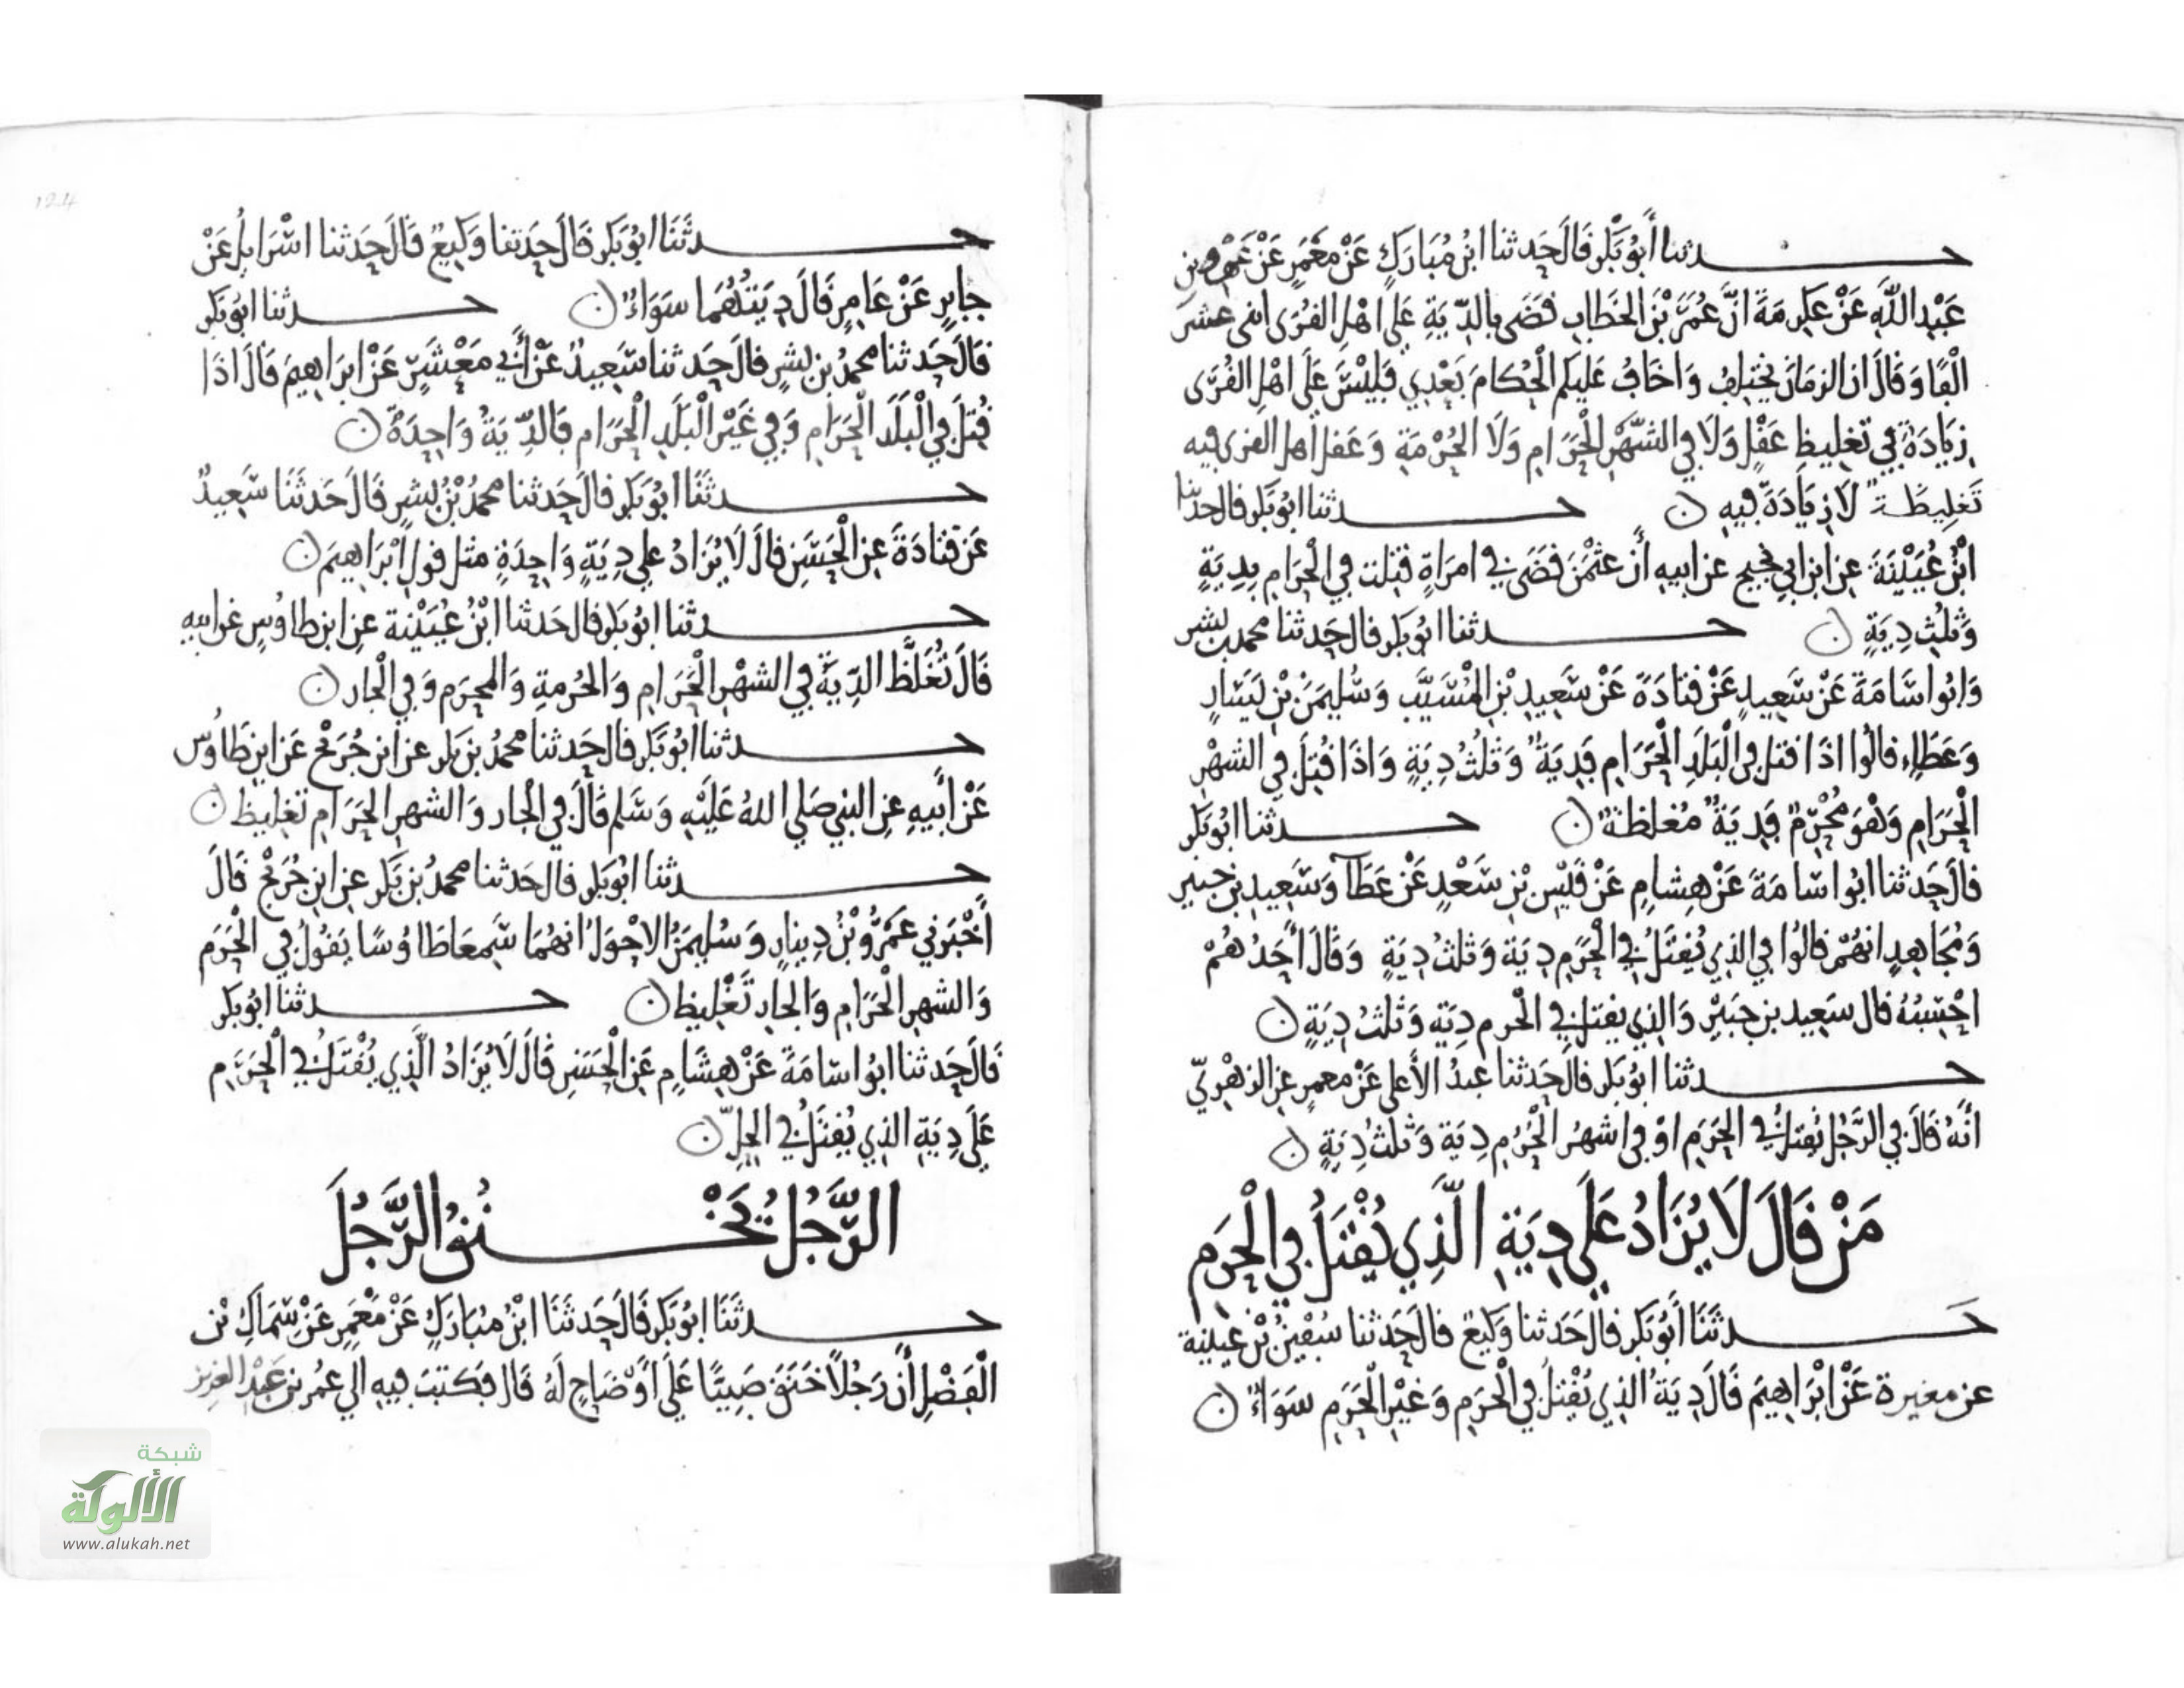 حدثنا أبو بكر قال حدثنا ابن مبارك عن معمر عن عمرو بن
عبد الله عن عكرمة ان عمر بن الخطاب قضى بالدية على اهل القرى اثنى عشر
الفا وقال ان الزمان يختلف واخاف عليكم الحكام بعدي فليس على اهل القرى
زيادة في تغليظ عقل ولا في الشهر الحرام ولا الحرمة وعقل أهل القرى فيه
تغليظة لا زيادة فيه ن حدثنا ابو بكر قال حدثنا
ابن عيينة عن ابن ابي نجيح عن ابيه أن عثمن قضى في امراة قتلت في الحرام بدية
وثلث دية ن حدثنا ابو بكر قال حدثنا محمد بن بشر
وابو اسامة عن سعيد عن قتادة عن سعيد بن المسيب وسليمن بن يسار
وعطاء قالوا اذا قتل في البلد الحرام فدية وثلث دية واذا قتل في الشهر
الحرام وهو محرم فدية مغلظة ن حدثنا ابو بكر
قال حدثنا ابو اسامة عن هشام عن قيس بن سعد عن عطآ وسعيد بن جبير
ومجاهد انهم قالوا في الذي يقتل في الحرم دية وثلث دية وقال أحدهم
احسبه قال سعيد بن جبير والذي يقتل في الحرم دية وثلث دية ن
حدثنا ابو بكر قال حدثنا عبد الأعلى عن معمر عن الزهري
أنه قال في الرجل يقتل في الحرم او في اشهر الحرم دية وثلث دية ن
من قال لا يزاد على دية الذي يقتل في الحرم
حدثنا أبو بكر قال حدثنا وكيع قال حدثنا سفين بن عيينة
عن مغيرة عن ابراهيم قال دية الذي يقتل في الحرم وغير الحرم سواء ن
حدثنا ابو بكر قال حدثنا وكيع قال حدثنا اسرايل عن
جابر عن عامر قال ديتهما سواء ن حدثنا ابو بكر
قال حدثنا محمد بن بشر قال حدثنا سعيد عن أبي معشر عن ابراهيم قال اذا
قتل في البلد الحرام وفي غير البلد الحرام فالدية واحدة ن
حدثنا ابو بكر قال حدثنا محمد بن بشر قال حدثنا سعيد
عن قتادة عن الحسن قال لا يزاد على دية واحدة مثل قول ابراهيم ن
حدثنا ابو بكر قال حدثنا ابن عيينة عن ابن طاوس عن ابيه
قال تغلظ الدية في الشهر الحرام والحرمة والمحرم وفي الجار ن
حدثنا ابو بكر قال حدثنا محمد بن بكر عن ابن جريج عن ابن طاوس
عن أبيه عن النبي صلى الله عليه وسلم قال في الجار والشهر الحرام تغليظ ن
حدثنا ابو بكر قال حدثنا محمد بن بكر عن ابن جريج قال
أخبرني عمرو بن دينار وسليمن الاحول انهما سمعا طاوسا يقول في الحرم
والشهر الحرام والجار تغليظ ن حدثنا ابو بكر
قال حدثنا ابو اسامة عن هشام عن الحسن قال لا يزاد الذي يقتل في الحرم
على دية الذي يقتل في الحل ن
الرجل يخنق الرجل
حدثنا ابو بكر قال حدثنا ابن مبارك عن معمر عن سماك بن
الفضل أن رجلا خنق صبيا على أوضاح له قال فكتب فيه الى عمر بن عبد العزيز
124
شبكة
الألوكة
www.alukah.net